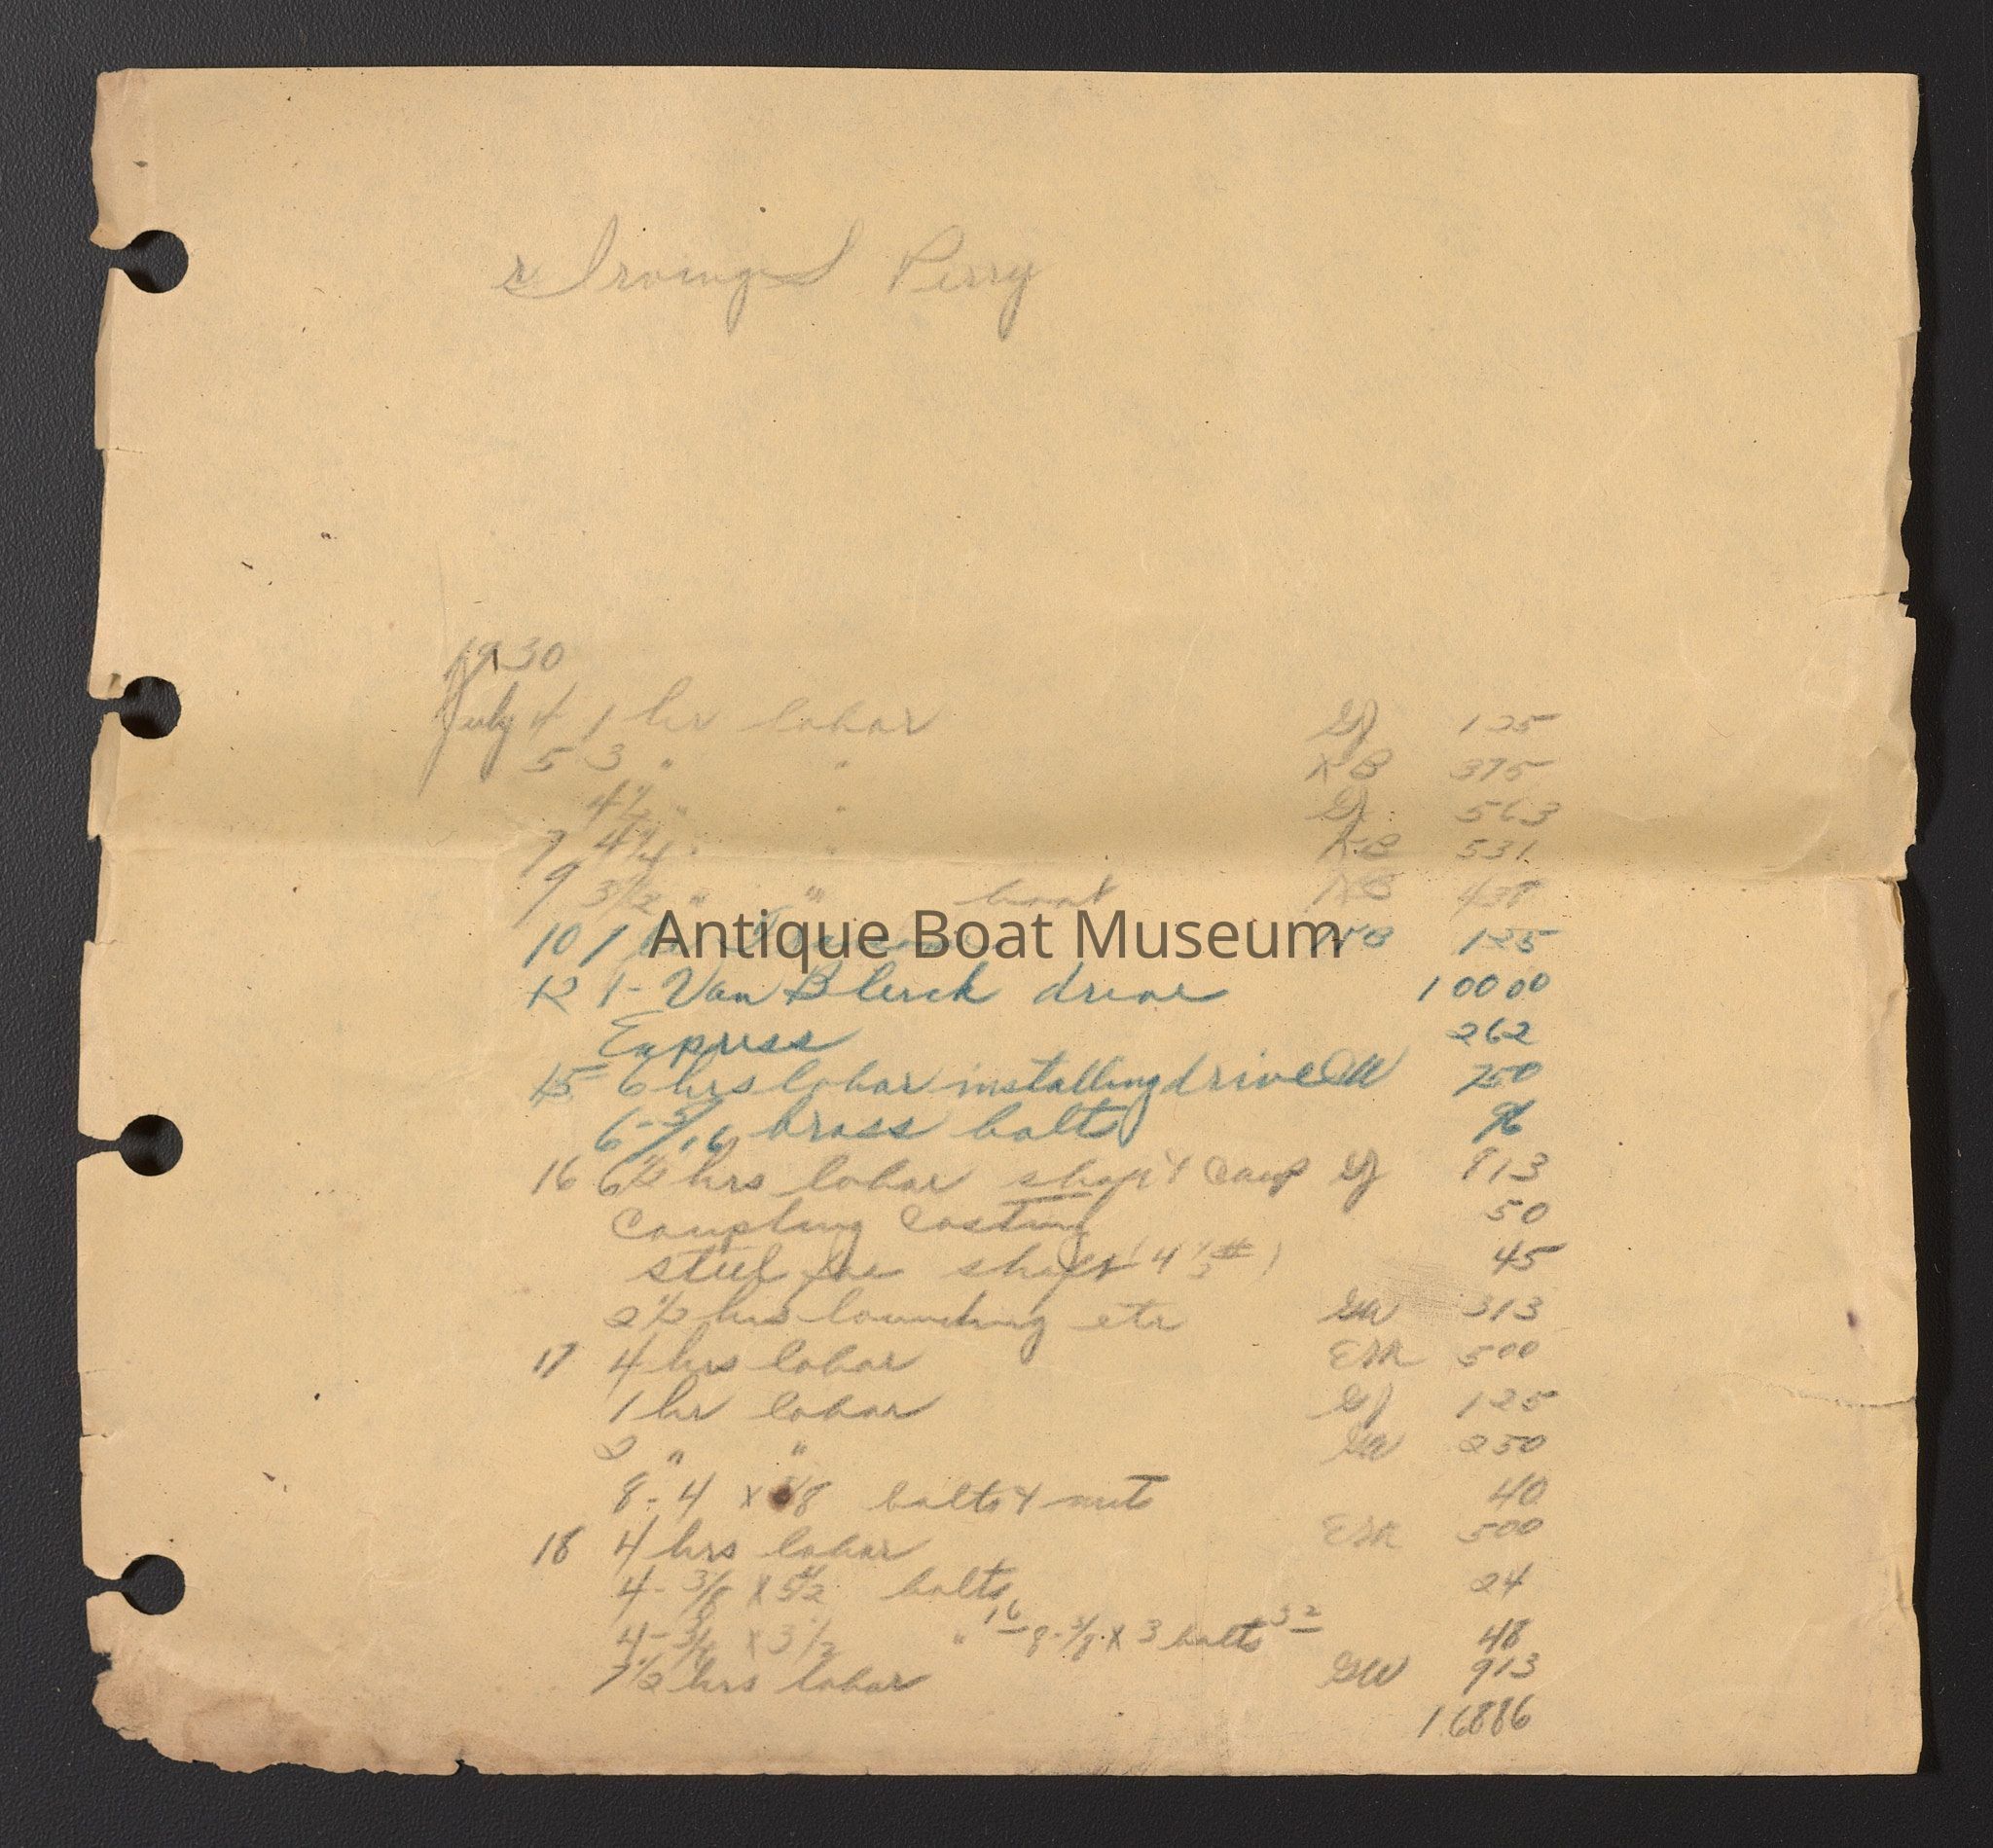 Irving S Perry
1930
July 4 1 hr labor GJ 125
5 3 " " KB 375
4 1/2 " " GJ 563
7 4 1/4 " " KB 531
9 3 1/2 " " boat KB 438
10 1 KB 125
Antique Boat Museum
12 1- Van Blerck drive 10000
Express 262
15 6 hrs labor installing drive GW 750
6-5/16 brass bolts 96
16 6 1/2 hrs labor shaft & coup GJ 813
Coupling Casting 50
steel for shaft (4 1/2 #) 45
2 1/2 hrs launching etc GW 313
17 4 hrs labor ESR 500
1 hr labor GJ 125
2 " " GW 250
8-4 x 3/8 bolts & nuts 40
18 4 hrs labor ESR 500
4-3/8 x 5 1/2 bolts 24
4-3/8 x 3 1/2 " 16 8-3/8 x 3 bolts 32 48
7 1/2 hrs labor GW 913
16886